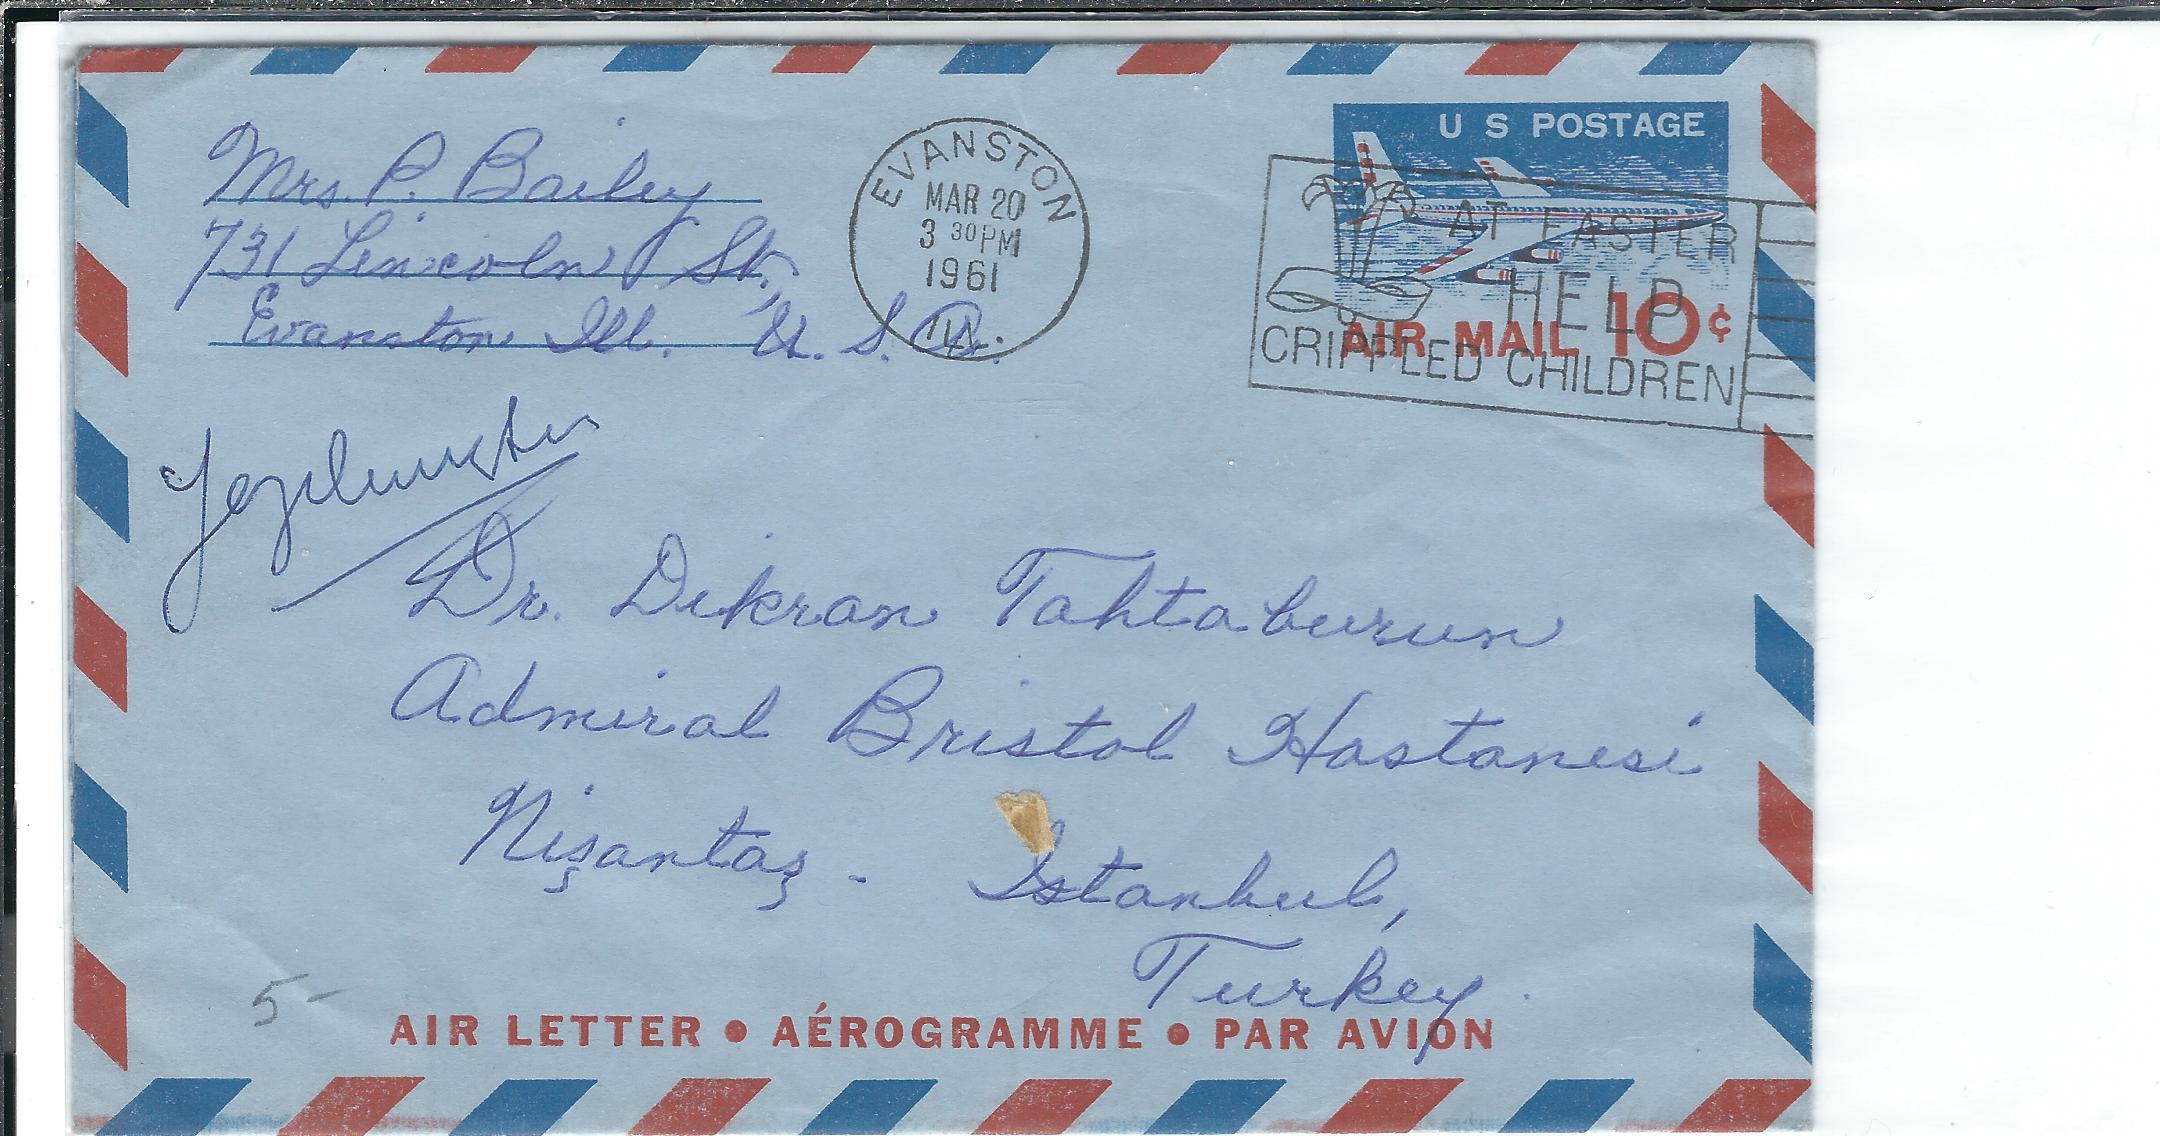 Mrs. P. Bailey
731 Lincoln St.
Evanston Ill. U. S. A.
EVANSTON
MAR 20
3 30 PM
1961
ILL.
U S POSTAGE
AIR MAIL 10¢
AT EASTER
HELP
CRIPPLED CHILDREN
Dr. Dikran Tahtaburun
Admiral Bristol Hastanesi
Nişantaş - Istanbul,
Turkey.
5-
AIR LETTER • AÉROGRAMME • PAR AVION